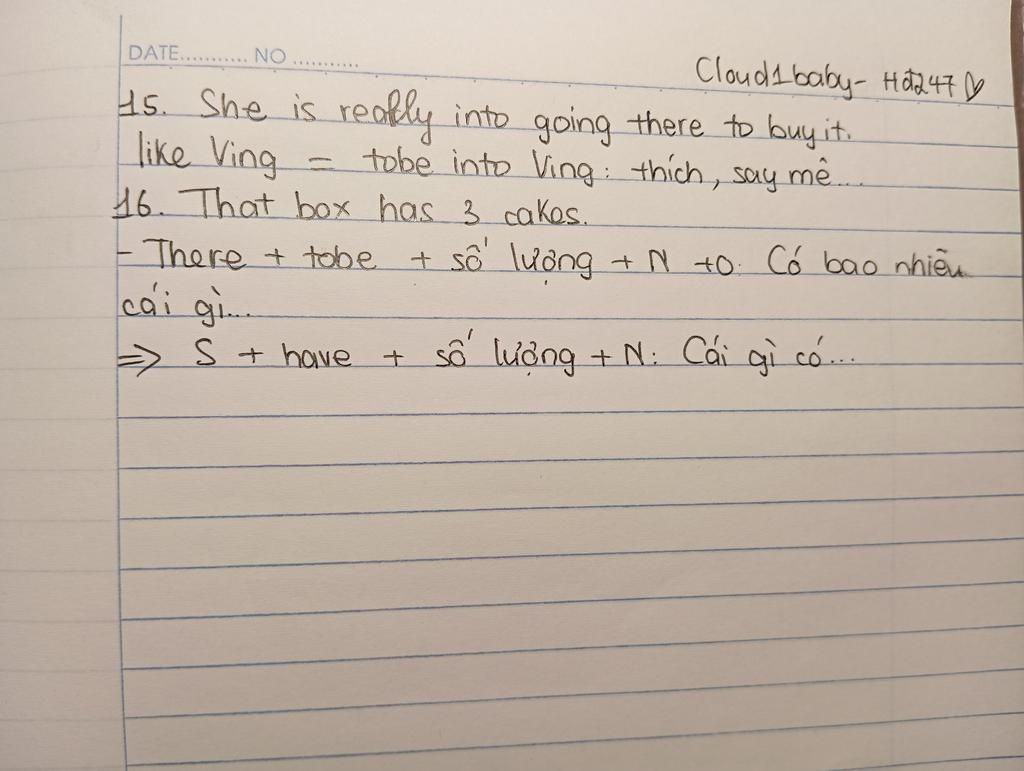 DATE........... NO ...........
Cloud1baby- Hđ247 ♡
15. She is really into going there to buy it.
like Ving = tobe into Ving: thích, say mê...
16. That box has 3 cakes.
- There + tobe + số lượng + N +O: Có bao nhiêu
cái gì...
=> S + have + số lượng + N: Cái gì có...